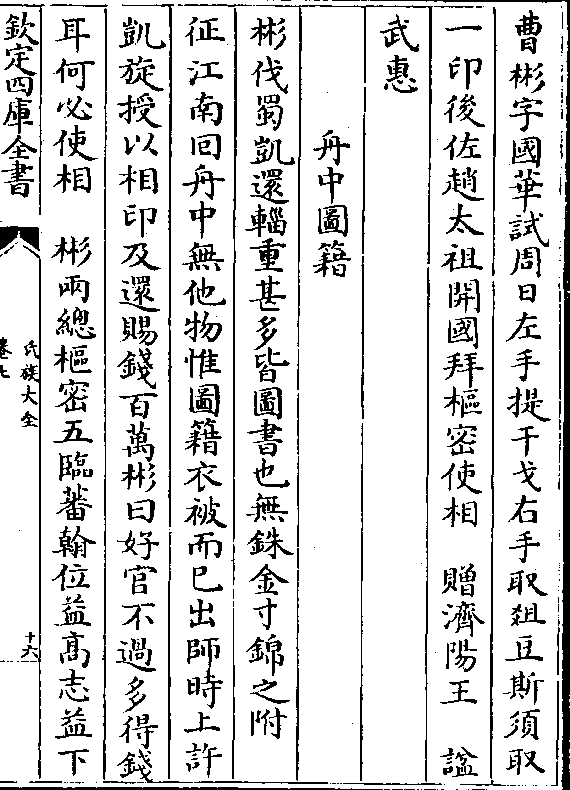 曹彬字國華試周日左手提干戈右手取爼豆斯須取
一印後佐趙太祖開國拜樞密使相　贈濟陽王　諡
武惠
舟中圖籍
彬伐蜀凱還輜重甚多皆圖書也無銖金寸錦之附
征江南回舟中無他物惟圖籍衣被而已出師時上許
凱旋授以相印及還賜錢百萬彬曰好官不過多得錢
耳何必使相　彬兩總樞密五臨蕃翰位益髙志益下
欽定四庫全書
氏族大全
卷七
十六